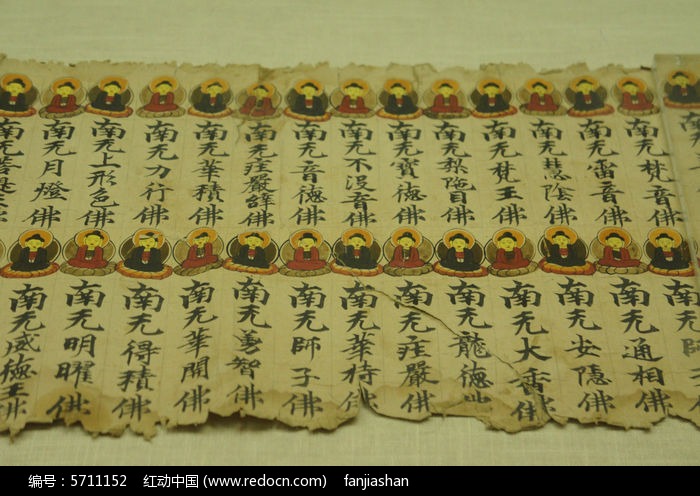 南无梵音佛
南无雷音佛
南无慧陰佛
南无梵王佛
南无梨陁目佛
南无寶德佛
南无不沒音佛
南无音德佛
南无莊嚴辞佛
南无華積佛
南无力行佛
南无上形色佛
南无月燈佛
南无菩提王佛
南无師
南无通相佛
南无安隱佛
南无大音佛
南无龍德佛
南无莊嚴佛
南无華持佛
南无師子佛
南无善智佛
南无華開佛
南无得積佛
南无明曜佛
南无威德王佛
编号：5711152 红动中国 (www.redocn.com) fanjiashan